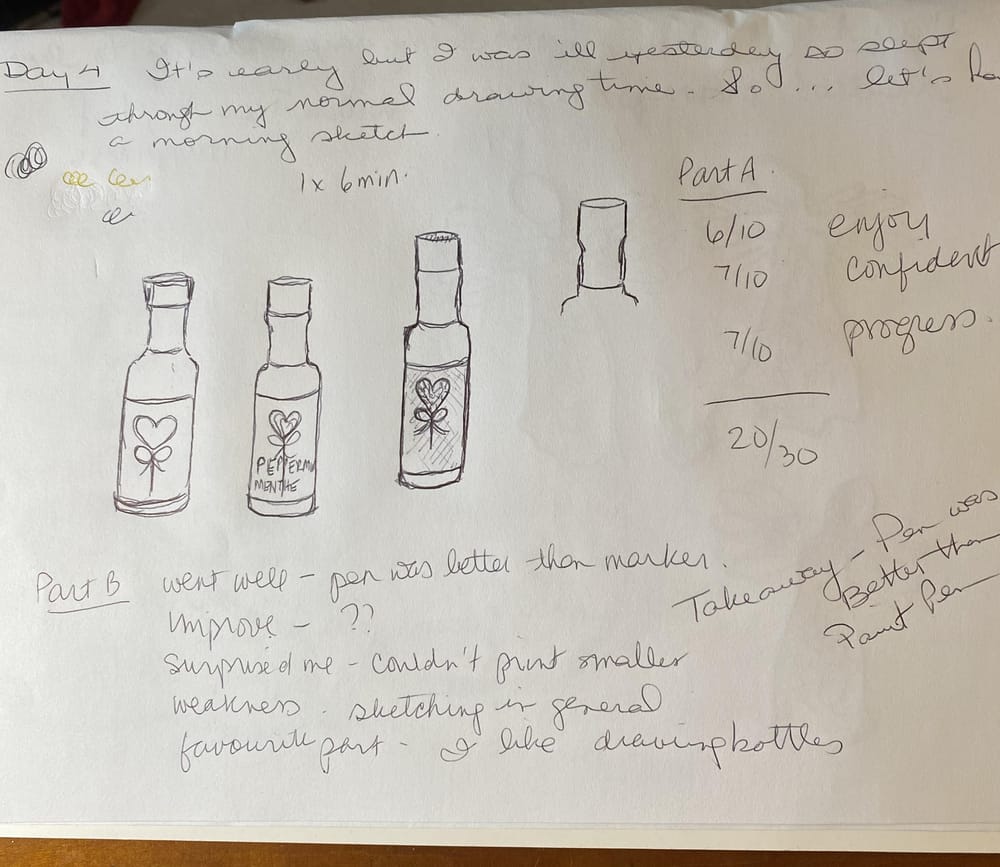 Day 4 It's early but I was ill yesterday so slept
through my normal drawing time. So... let's
a morning sketch.
1 x 6 min.
Part A.
6/10 enjoy
7/10 confident
7/10 progress.
20/30
PEPPERM
MENTHE
Part B went well - pen was better than marker.
improve - ??
surprised me - couldn't print smaller
weakness. sketching in general
favourite part - I like drawing bottles
Takeaway - Pen was
Better than
Paint Pen